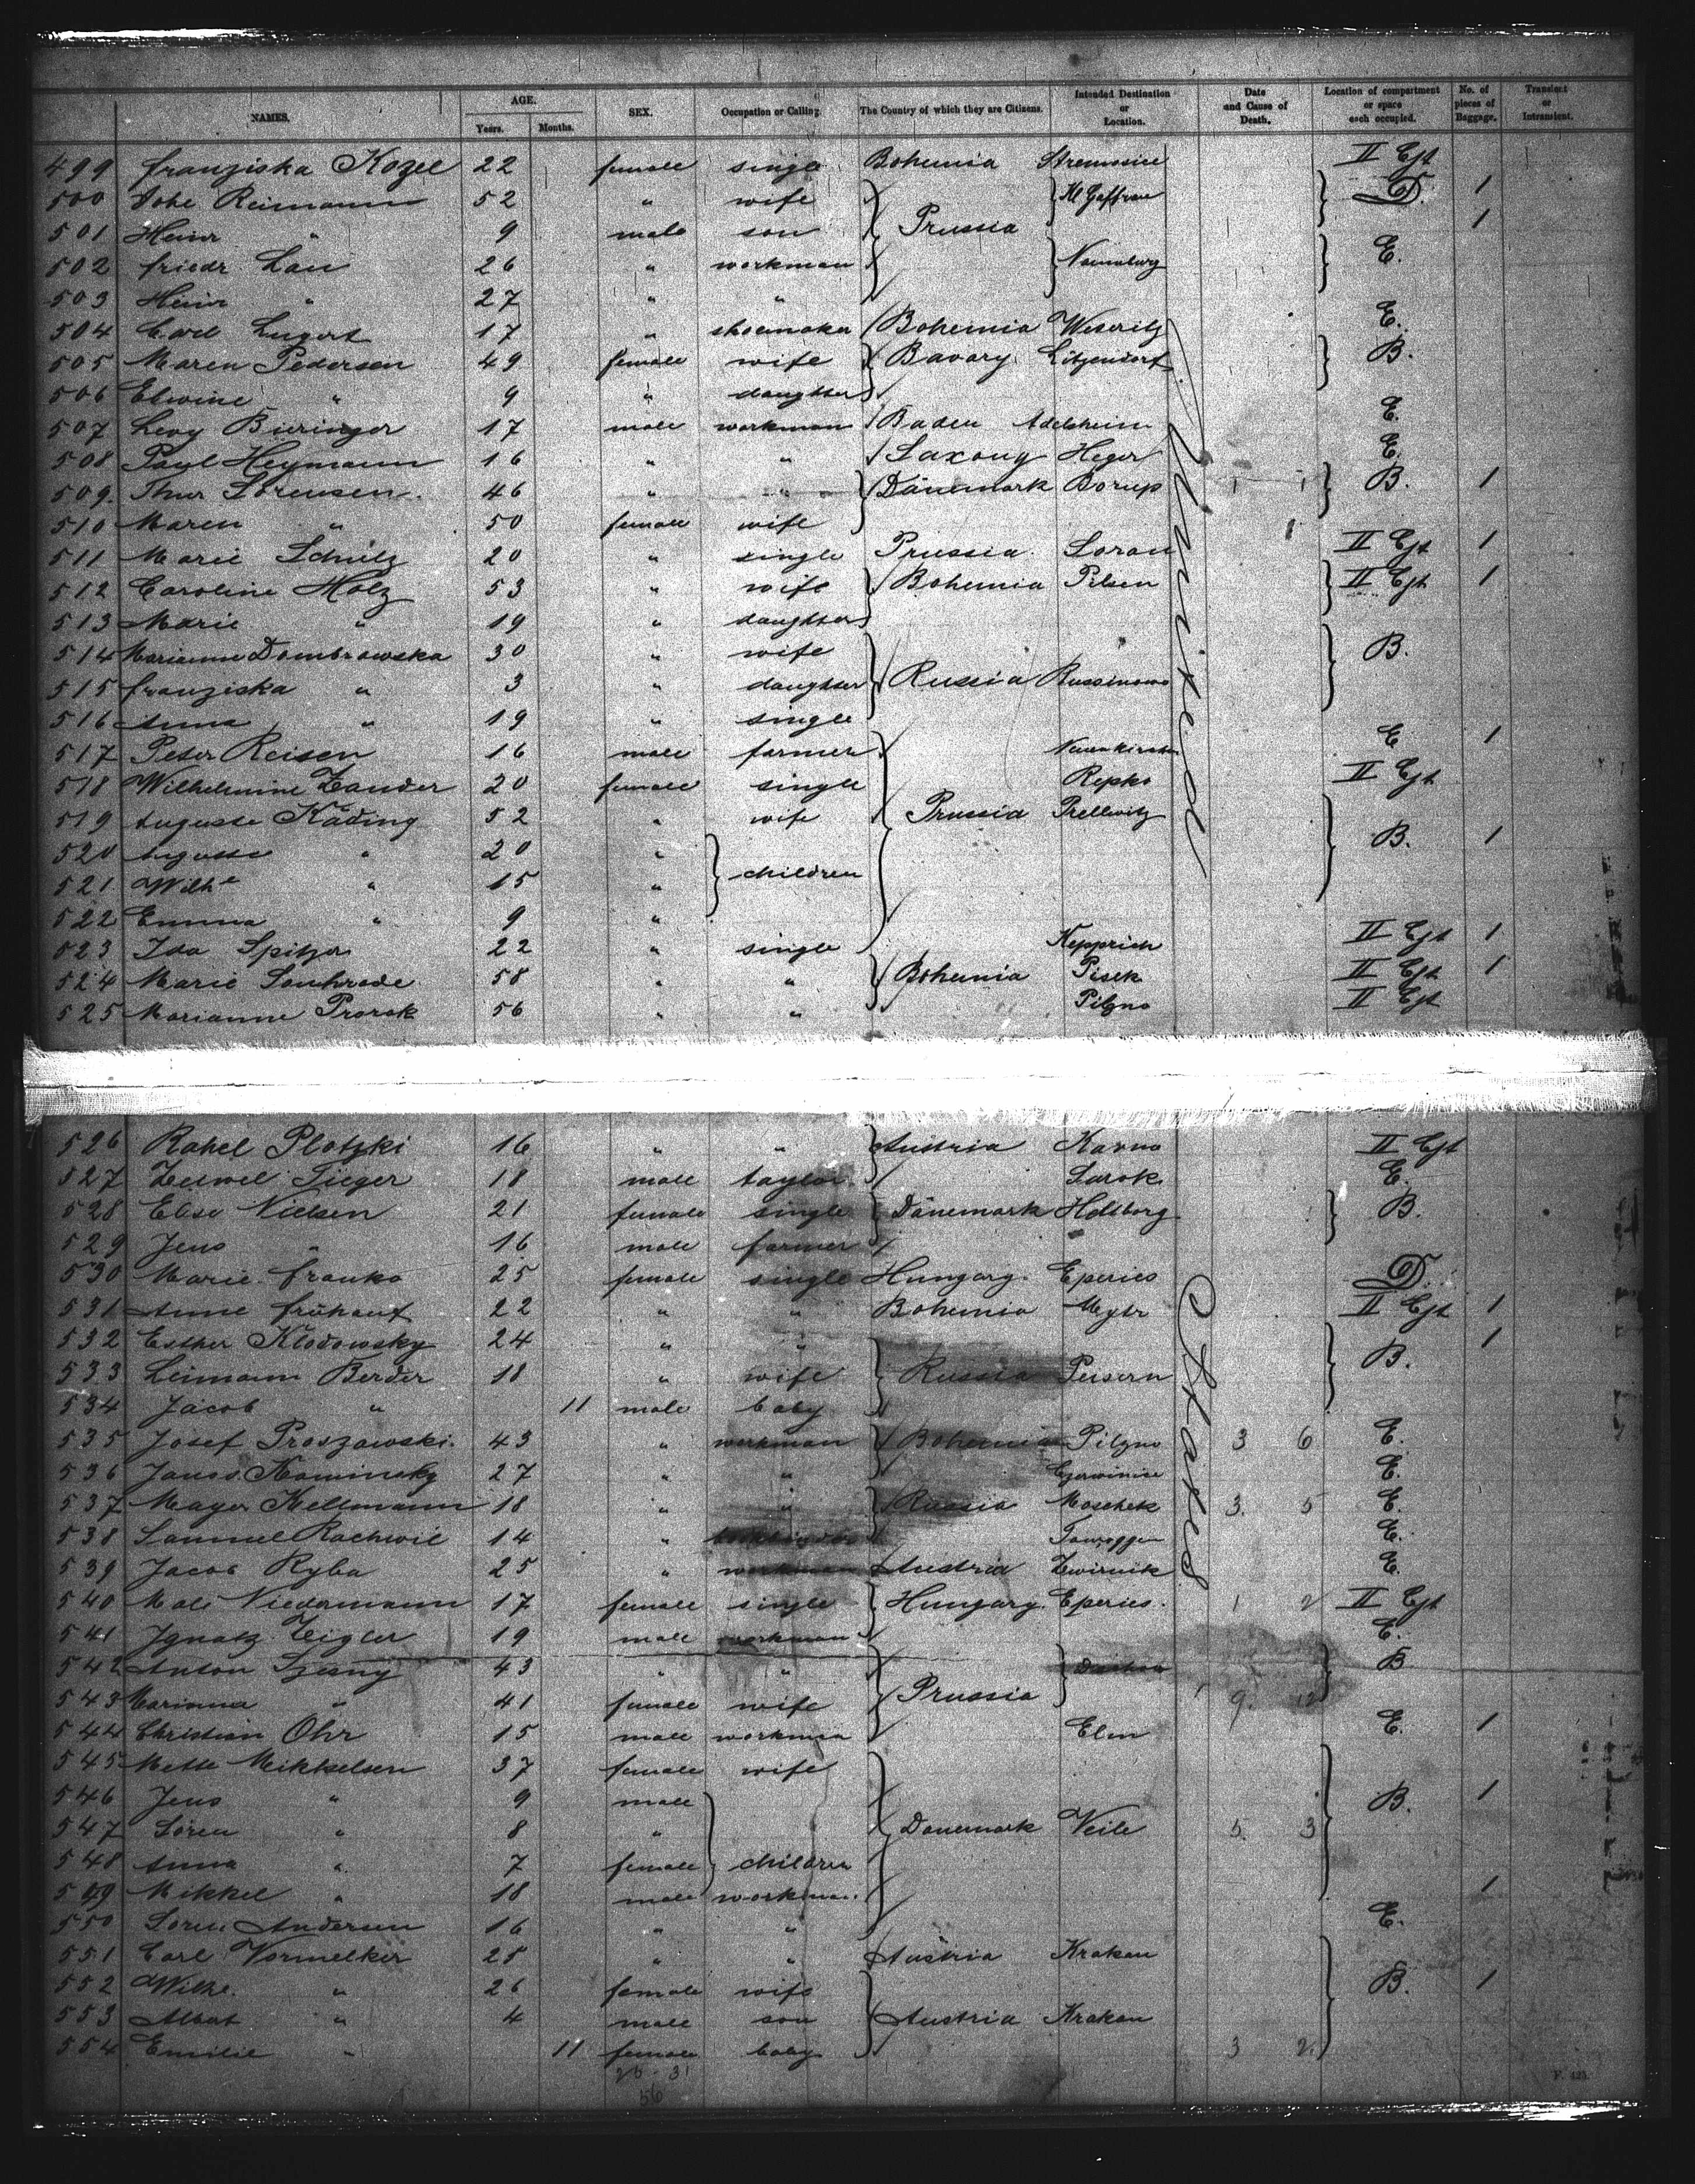 NAMES. AGE. Years. Months. SEX. Occupation or Calling. The Country of which they are Citizens. Intended Destination or Location. Date and Cause of Death. Location of compartment or space each occupied. No. of pieces of Baggage. Transient or Intransient.
499 Franziska Kozel 22 female single Bohemia II Cjt
500 Reimann 52 " wife Prussia Kl Gaffron D. 1
501 Heinr " 9 male son 1
502 Friedr Lau 26 " workman E.
503 Heinr " 27 " "
504 Carl Lugert 17 " shoemaker Bohemia Weseritz E.
505 Maren Pedersen 49 female wife Bavary Litzendorf B.
506 Elwine " 9 " daughter
507 Levy Bieringer 17 male workman Baden Adelsheim E.
508 Paul Heymann 16 " " Saxony Heger E.
509. Thur Sörensen. 46 " " Dänemark Borup B. 1
510 Maren " 50 female wife
511 Marie Schulz 20 " single Prussia Loran II Cjt 1
512 Caroline Holz 53 " wife Bohemia Pilsen II Cjt 1
513 Marie " 19 " daughter
514 Marianne Dombrowska 30 " wife Russia Russinowo B.
515 Franziska " 3 " daughter
516 Anna " 19 " single
517 Peter Reisen 16 male farmer Prussia Neunkirchen E 1
518 Wilhelmine Zander 20 female single Repko II Cjt
519 Auguste Käding 52 " wife Prellwitz B. 1
520 Auguste " 20 " children
521 Wilhe " 15 "
522 Emma " 9 "
523 Ida Spitzer 22 " single Kepprich II Cjt 1
524 Marie Souhrade 58 " " Bohemia Pisek II Cjt 1
525 Marianne Prorok 56 " " Pilzno II Cjt
United
526 Rahel Plotzki 16 " " Austria Kovno II Cjt
527 Zeiwel Tieger 18 male taylor Sarok E.
528 Elise Nielsen 21 female single Dänemark B.
529 Jens " 16 male farmer
530 Marie Franko 25 female single Hungary. Eperies D.
531 Anne Frühauf 22 " " Bohemia II Cjt 1
532 Esther Klodowsky 24 " " Russia B. 1
533 Leimann Berder 18 " wife Peisern
534 Jacob " 11 male baby
535 Josef Proszowski. 43 " workman Bohemia Pilzno 3 6 E.
536 Kaminsky 27 " " E.
537 Mayer Kellmann 18 " " Russia Moschek 3. 5 E.
538 Samuel Rachwil 14 " Tauroggen E.
539 Jacob Ryba 25 " workman Austria Zwirnik E.
540 Mali Niedermann 17 female single Hungary. Eperies. 1 2 II Cjt
541 Ignatz Zigler 19 male workman E.
542 Anton Szesny 43 " " Prussia B
543 Marianna " 41 female wife 9. 12
544 Christian Ohr 15 male workman Elm E. 1
545 Mette Mikkelsen 37 female wife Danemark Veile
546 Jens " 9 male children B. 1
547 Sören " 8 " 5. 3
548 Anna " 7 female
549 Mikkel " 18 male workman. 1
550 Sören Andersen 16 " " E.
551 Carl Vormelker 28 " " Austria Krakau B. 1
552 Wilhe. " 26 female wife Austria Krakau
553 Albert " 4 male son
554 Emilie " 11 female baby 3 2.
States
F. 423.